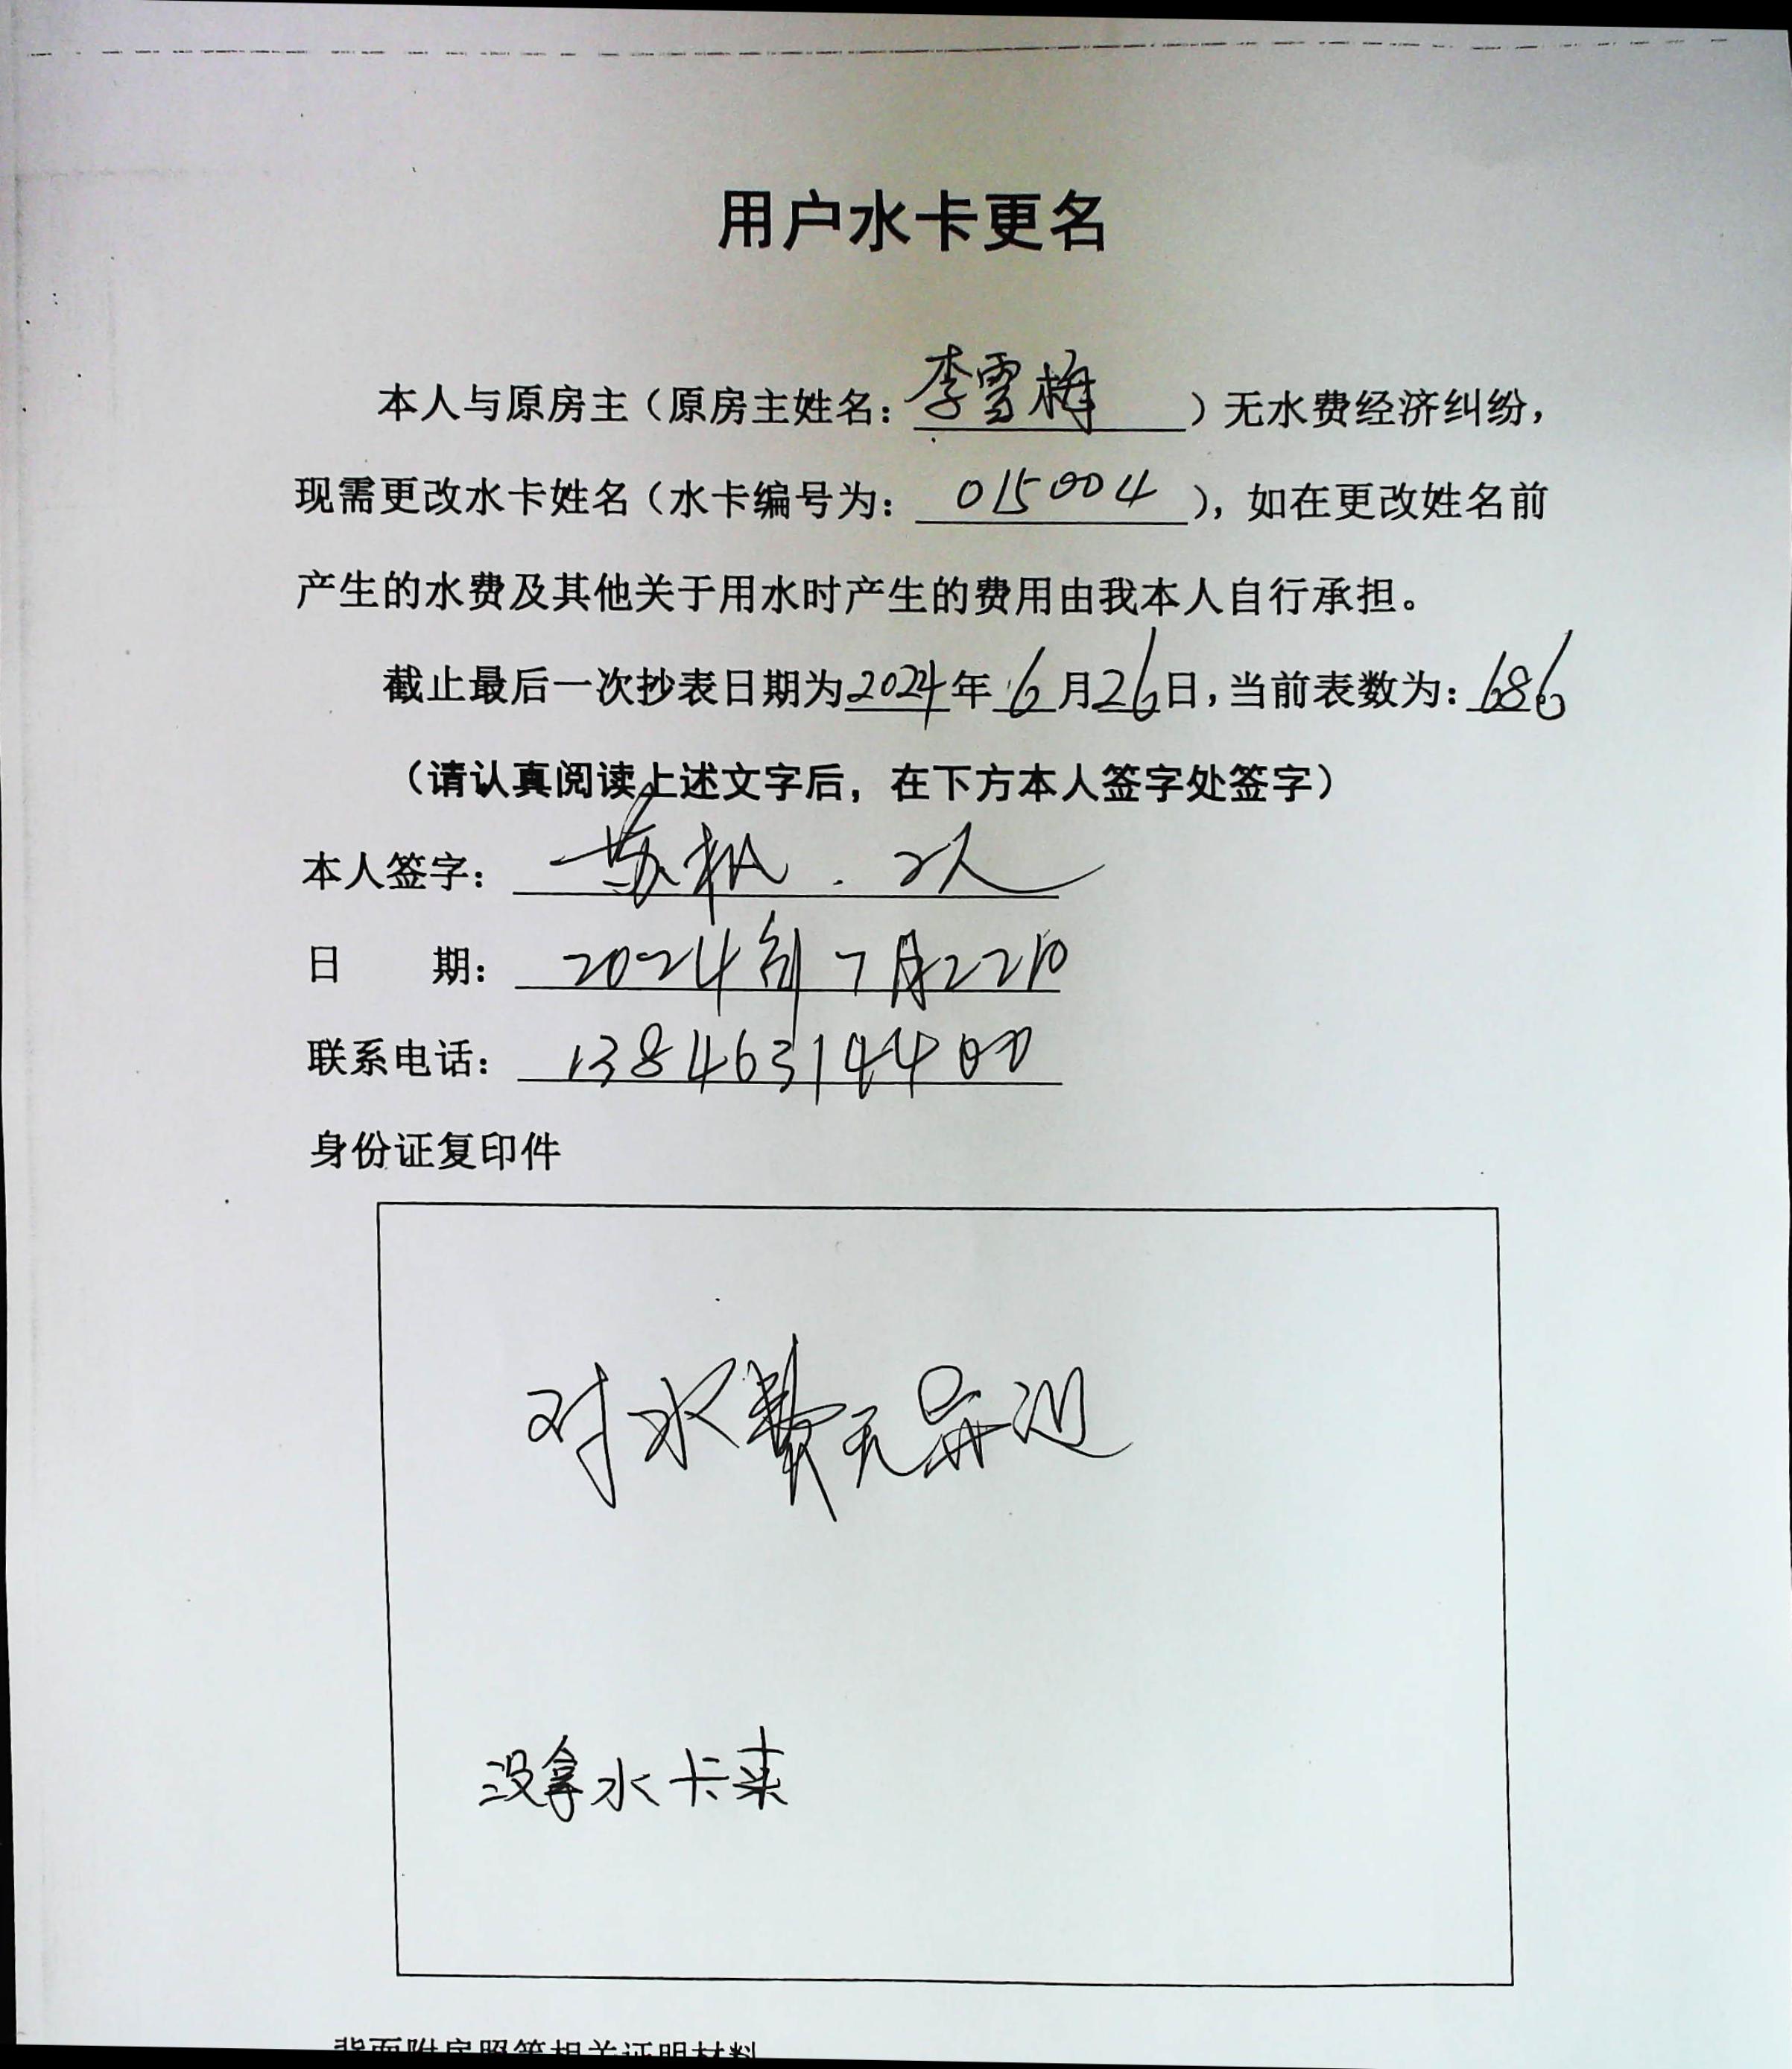 用户水卡更名
本人与原房主（原房主姓名：李雪梅）无水费经济纠纷，
现需更改水卡姓名（水卡编号为：015004），如在更改姓名前
产生的水费及其他关于用水时产生的费用由我本人自行承担。
截止最后一次抄表日期为2024年6月26日，当前表数为：686
（请认真阅读上述文字后，在下方本人签字处签字）
本人签字：苏 2人
日 期：2024年7月22日
联系电话：13846314400
身份证复印件
对水费无异议
没拿水卡来
背面附房照等相关证明材料